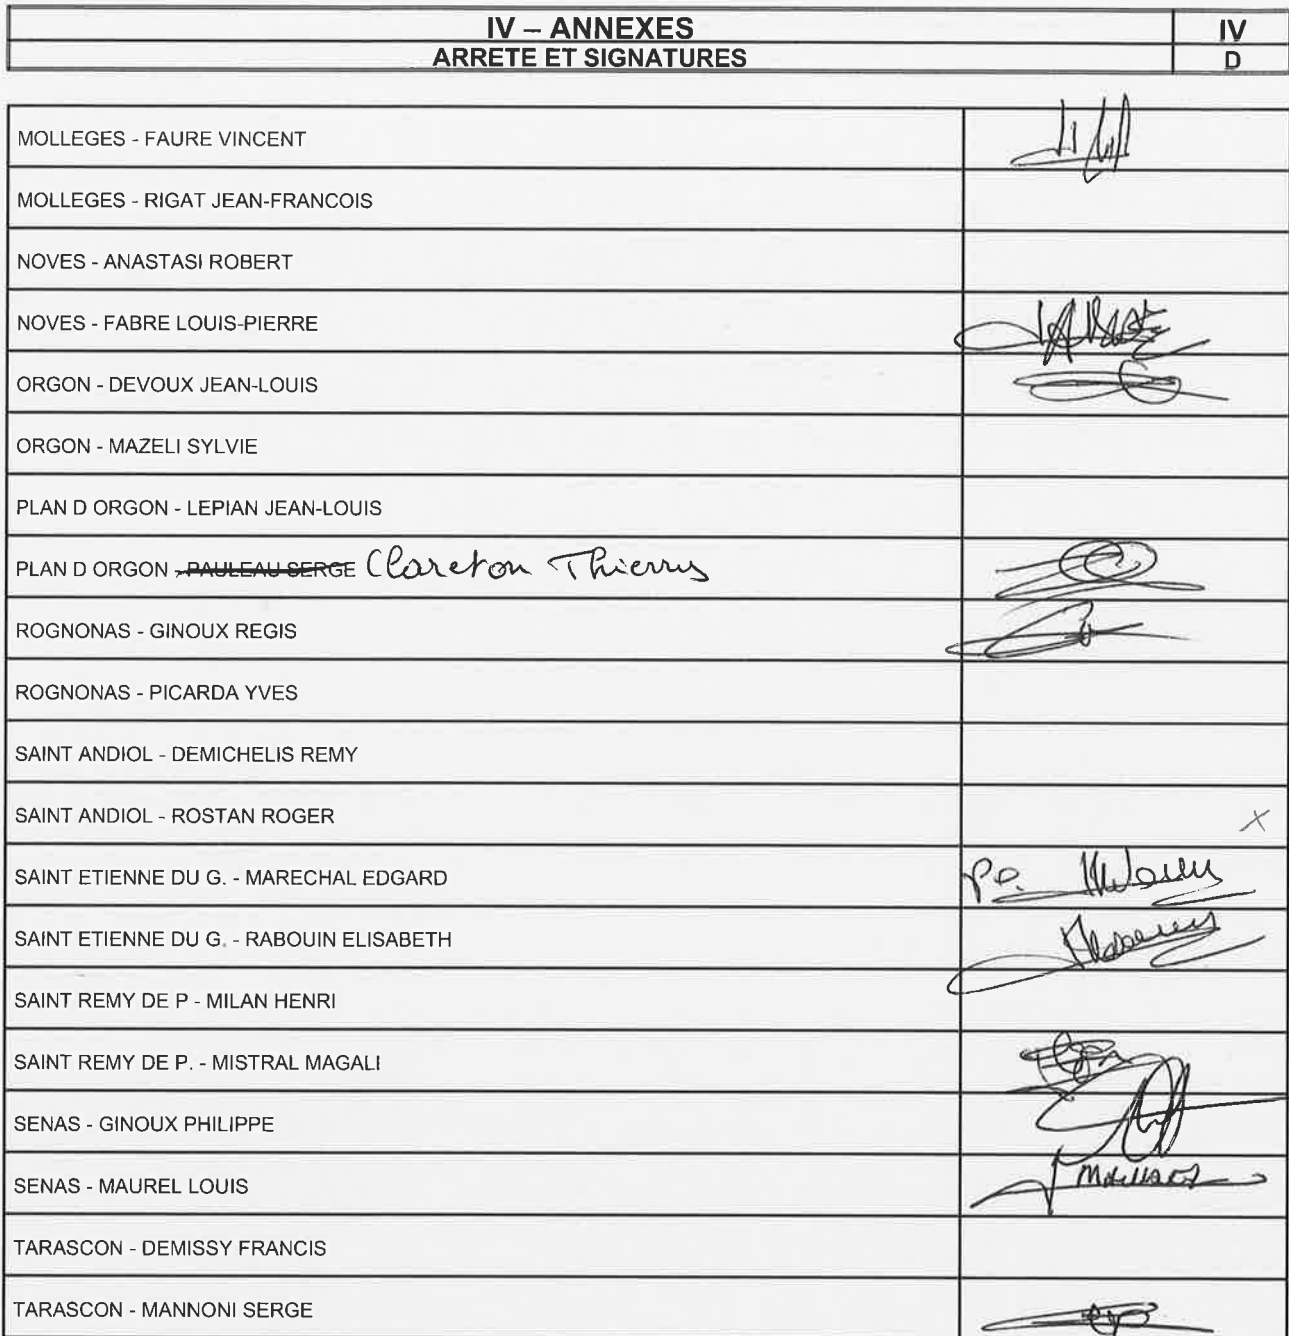 IV – ANNEXES
IV
ARRETE ET SIGNATURES
D
MOLLEGES - FAURE VINCENT
MOLLEGES - RIGAT JEAN-FRANCOIS
NOVES - ANASTASI ROBERT
NOVES - FABRE LOUIS-PIERRE
ORGON - DEVOUX JEAN-LOUIS
ORGON - MAZELI SYLVIE
PLAN D ORGON - LEPIAN JEAN-LOUIS
PLAN D ORGON - PAULEAU SERGE Clareton Thierry
ROGNONAS - GINOUX REGIS
ROGNONAS - PICARDA YVES
SAINT ANDIOL - DEMICHELIS REMY
SAINT ANDIOL - ROSTAN ROGER
SAINT ETIENNE DU G. - MARECHAL EDGARD
SAINT ETIENNE DU G. - RABOUIN ELISABETH
SAINT REMY DE P - MILAN HENRI
SAINT REMY DE P. - MISTRAL MAGALI
SENAS - GINOUX PHILIPPE
SENAS - MAUREL LOUIS
TARASCON - DEMISSY FRANCIS
TARASCON - MANNONI SERGE